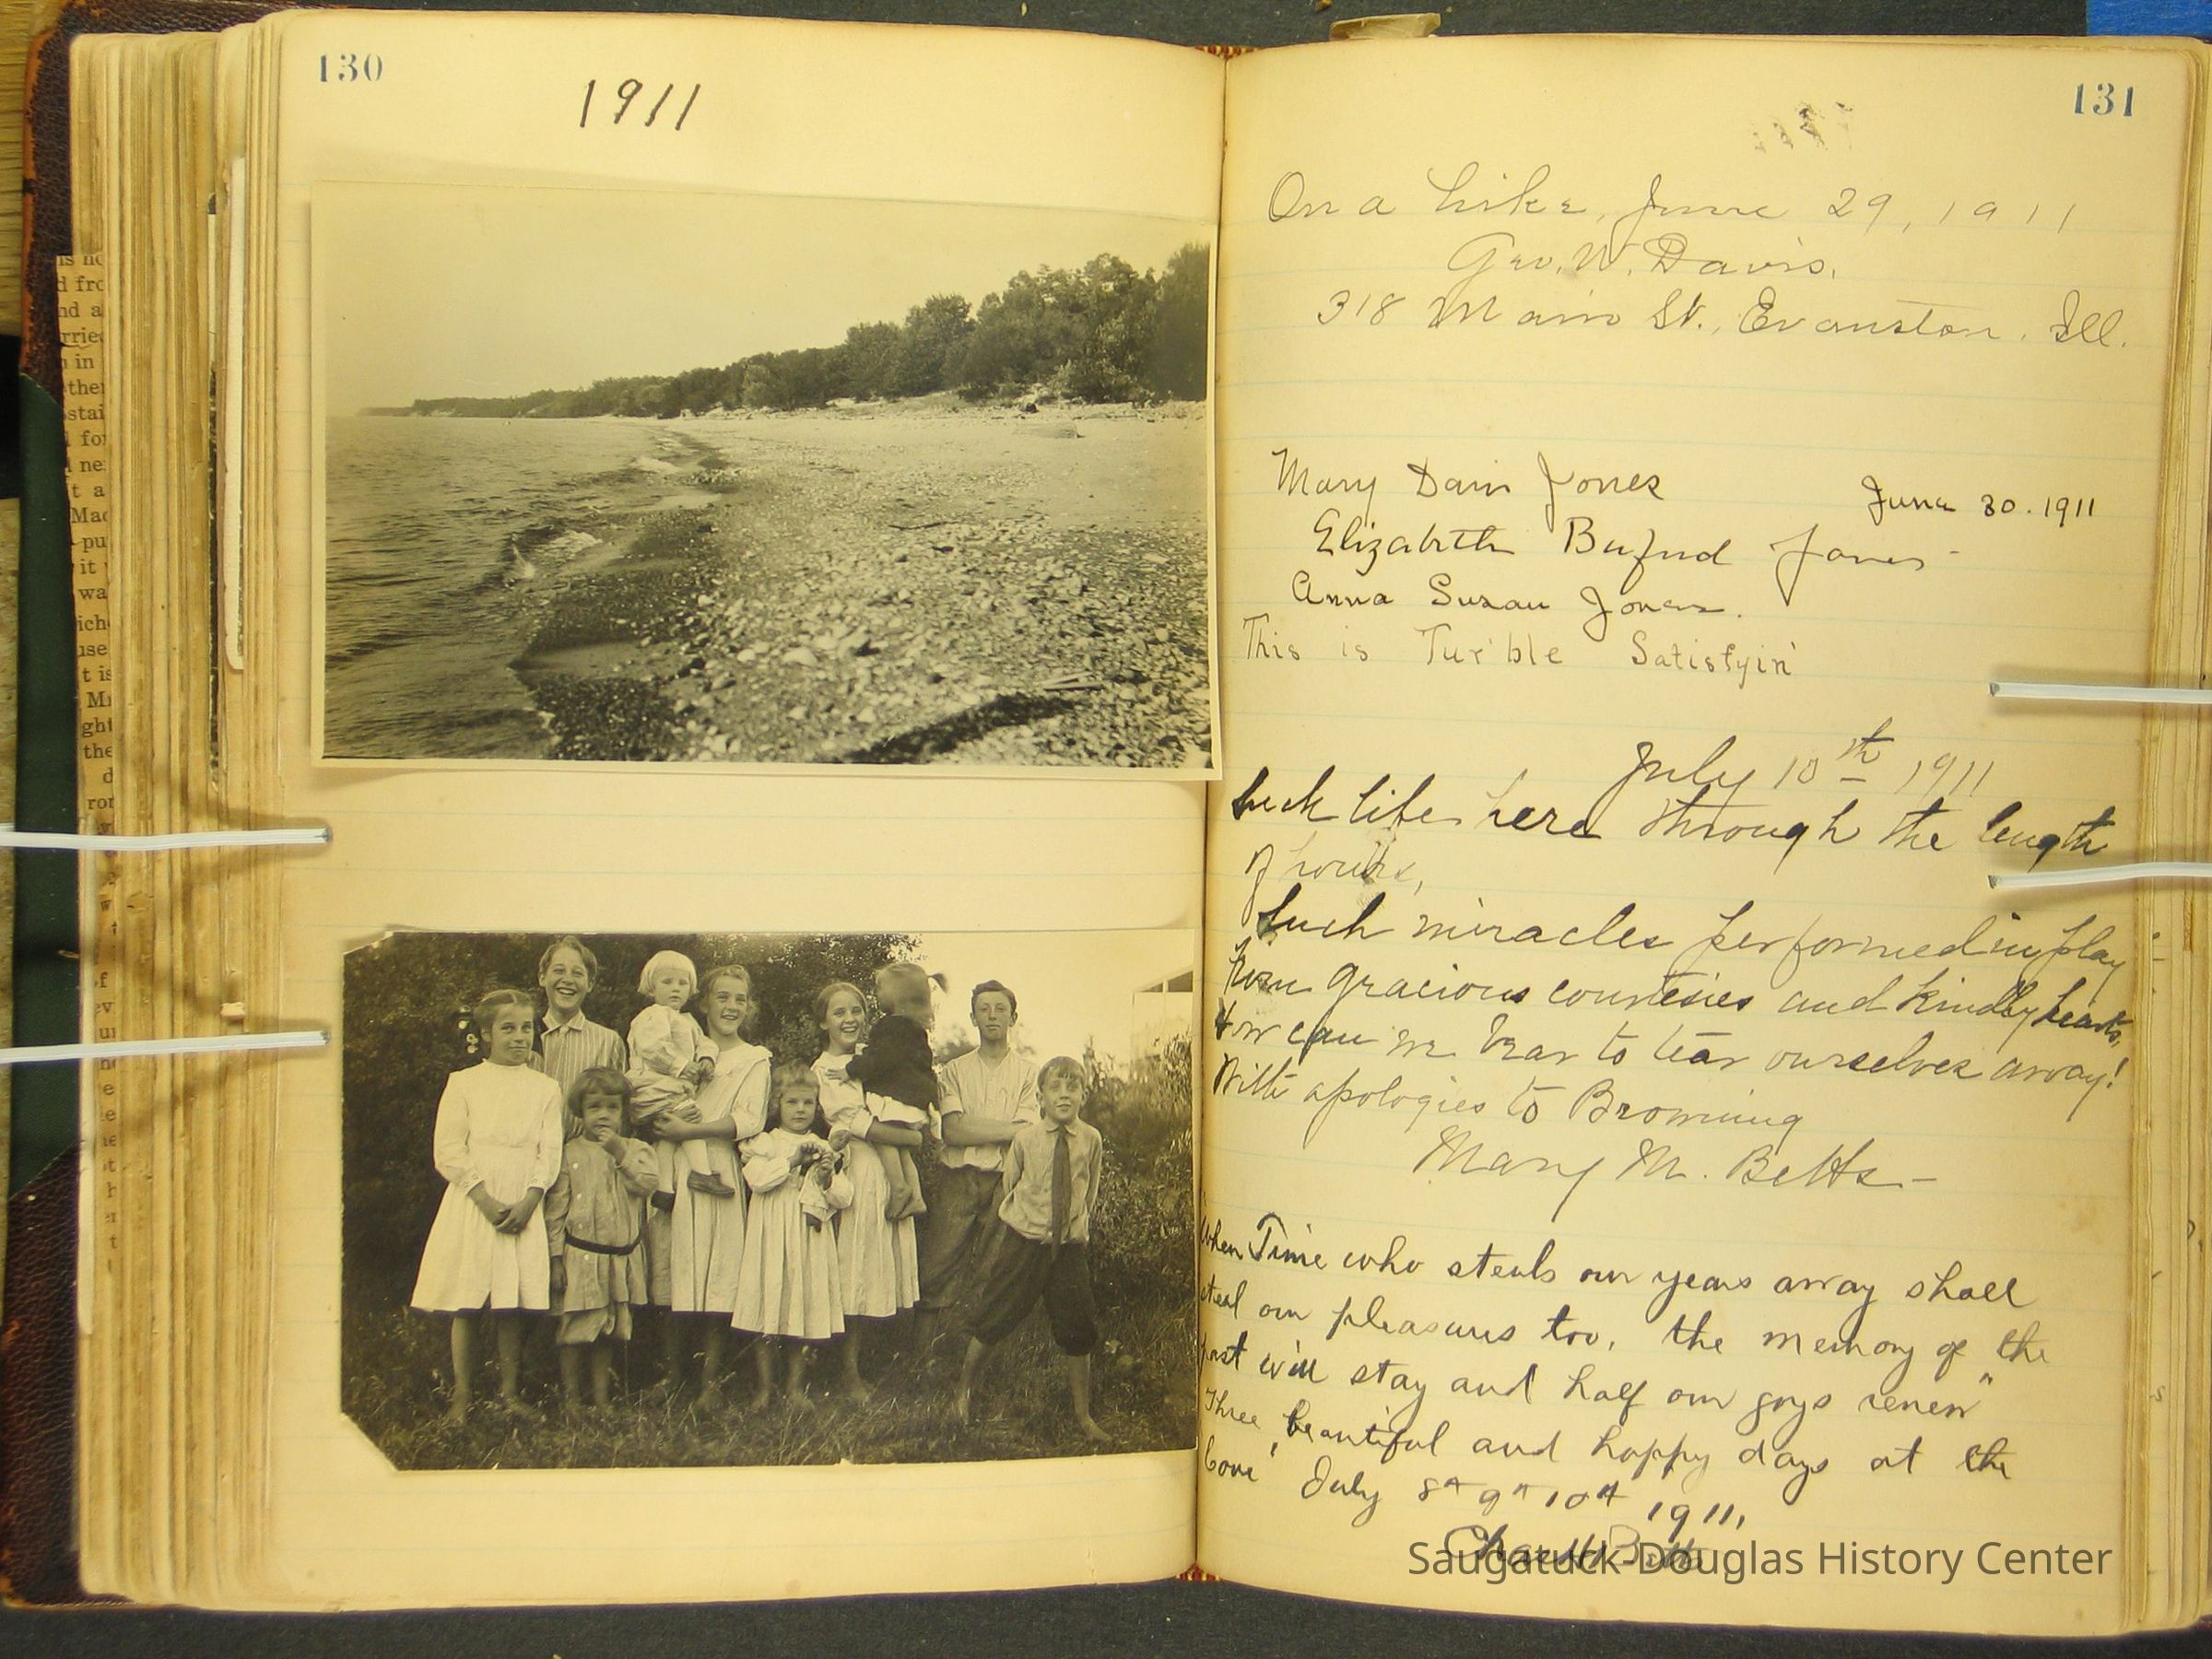 130
1911
131
On a hike, June 29, 1911
Geo. W. Davis.
318 Main St., Evanston, Ill.
Mary Dain Jones
June 30. 1911
Elizabeth Buford Jones
Anna Susan Jones.
This is Tur'ble Satisfyin'
July 10th 1911
Such life here through the length
of hours,
Such miracles performed in play
gracious courtesies and kindly hearts,
How can we bear to tear ourselves away!
With apologies to Browning
Mary M. Betts
When Time who steals our years away shall
steal our pleasures too, the memory of the
past will stay and half our joys renew"
Three beautiful and happy days at the
Cove July 8th 9th 10th 1911,
Betts
Saugatuck-Douglas History Center
is no
d fro
nd a
rried
n in
ther
stai
for
ne
t a
Mac
pu
it
wa
ich
use
t is
Mr
ght
the
d
ror